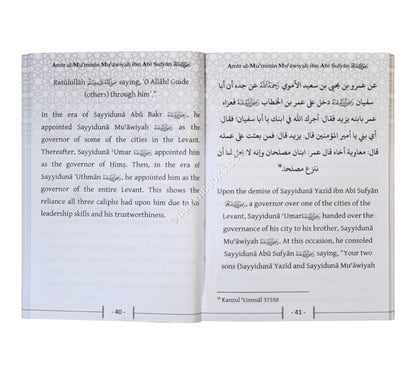 Amīr al-Mu'minīn Mu'āwiyah ibn Abī Sufyān
Rasūlullāh ﷺ saying, 'O Allāh! Guide
(others) through him'."
In the era of Sayyidunā Abū Bakr, he
appointed Sayyidunā Mu'āwiyah as the
governor of some of the cities in the Levant.
Thereafter, Sayyidunā 'Umar appointed him
as the governor of Ḥims. Then, in the era of
Sayyidunā 'Uthmān, he appointed him as the
governor of the entire Levant. This shows the
reliance all three caliphs had upon him due to his
leadership skills and his trustworthiness.
- 40 -
Amīr al-Mu'minīn Mu'āwiyah ibn Abī Sufyān
عن عمرو بن يحيى بن سعيد الأموي رحمه الله عن جده أن أبا
سفيان دخل على عمر بن الخطاب فعزاه
عمر بابنه يزيد، فقال: آجرك الله في ابنك يا أبا سفيان؛ فقال:
أي بني يا أمير المؤمنين قال: يزيد، قال: فمن بعثت على عمله
قال: معاوية أخاه قال عمر: ابنان مصلحان وإنه لا يحل لنا أن
ننزع مصلحا."
Upon the demise of Sayyidunā Yazīd ibn Abī Sufyān
, a governor over one of the cities of the
Levant, Sayyidunā 'Umar handed over the
governance of his city to his brother, Sayyidunā
Mu'āwiyah. At this occasion, he consoled
Sayyidunā Abū Sufyān saying, "Your two
sons (Sayyidunā Yazīd and Sayyidunā Mu'āwiyah
Kanzul 'Ummāl 37550
- 41 -